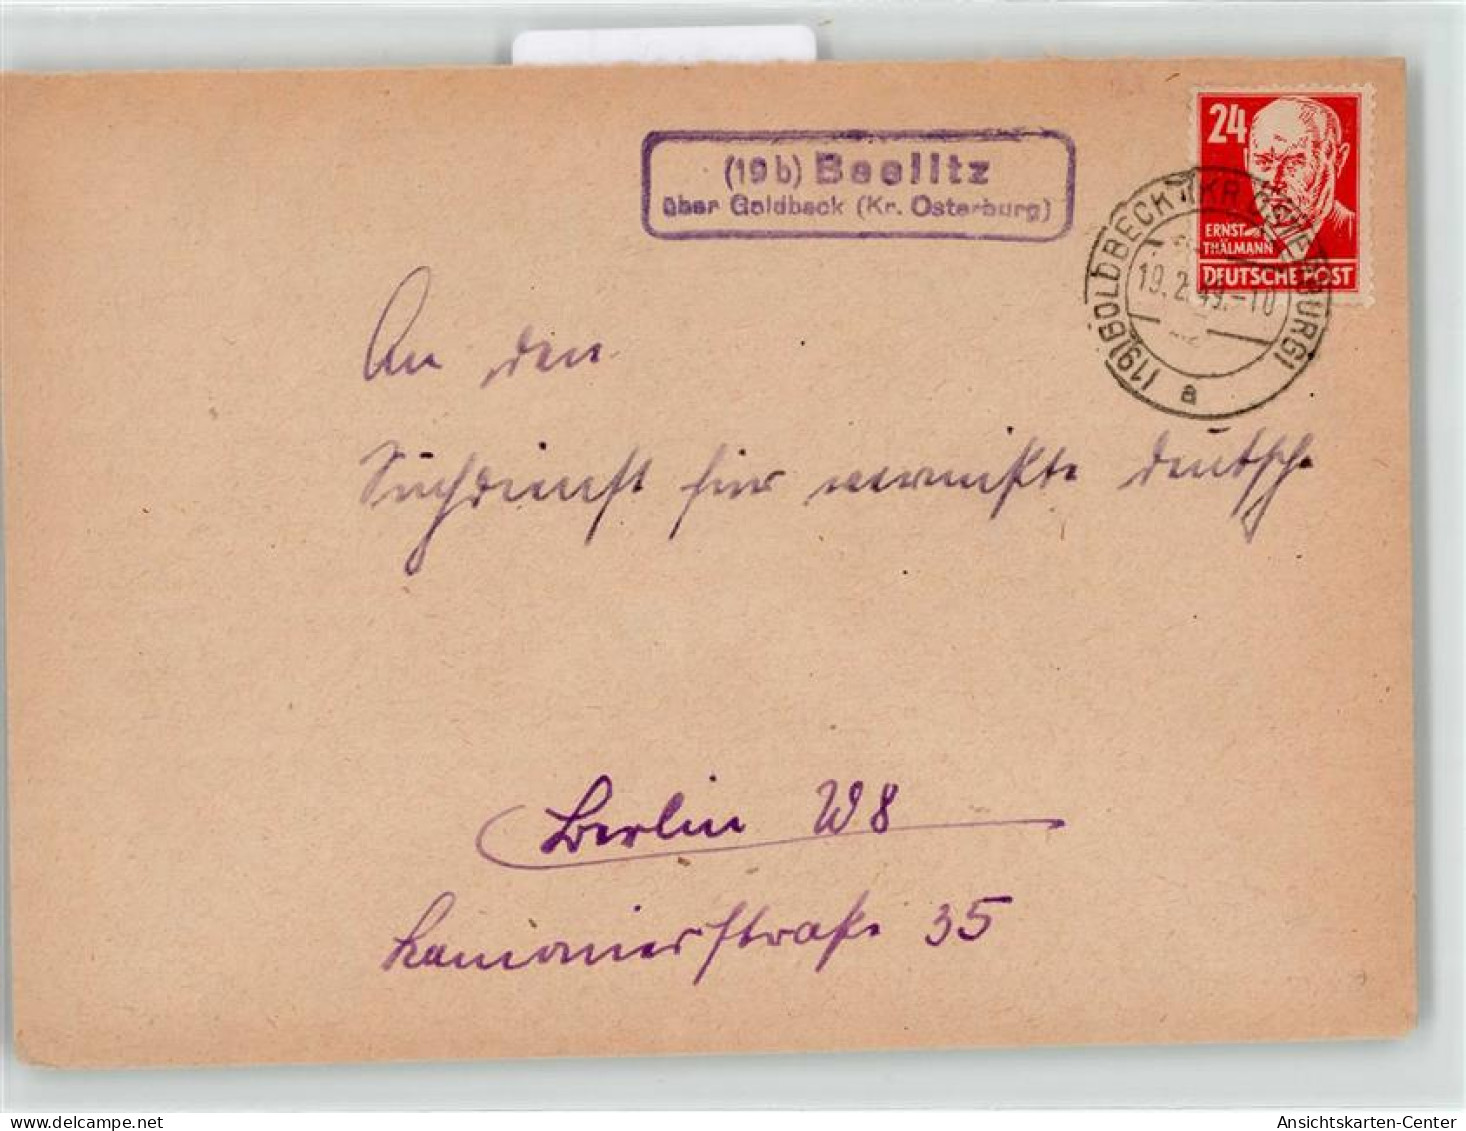 (19b) Beelitz
über Goldbeck (Kr. Osterburg)
24
ERNST
THÄLMANN
DEUTSCHE POST
(19) GOLDBECK (KR OSTERBURG)
19.2.49.-10
a
An den
Suchdienst für vermißte Deutsche
Berlin W8
Kanonierstraße 35
Ansichtskarten-Center